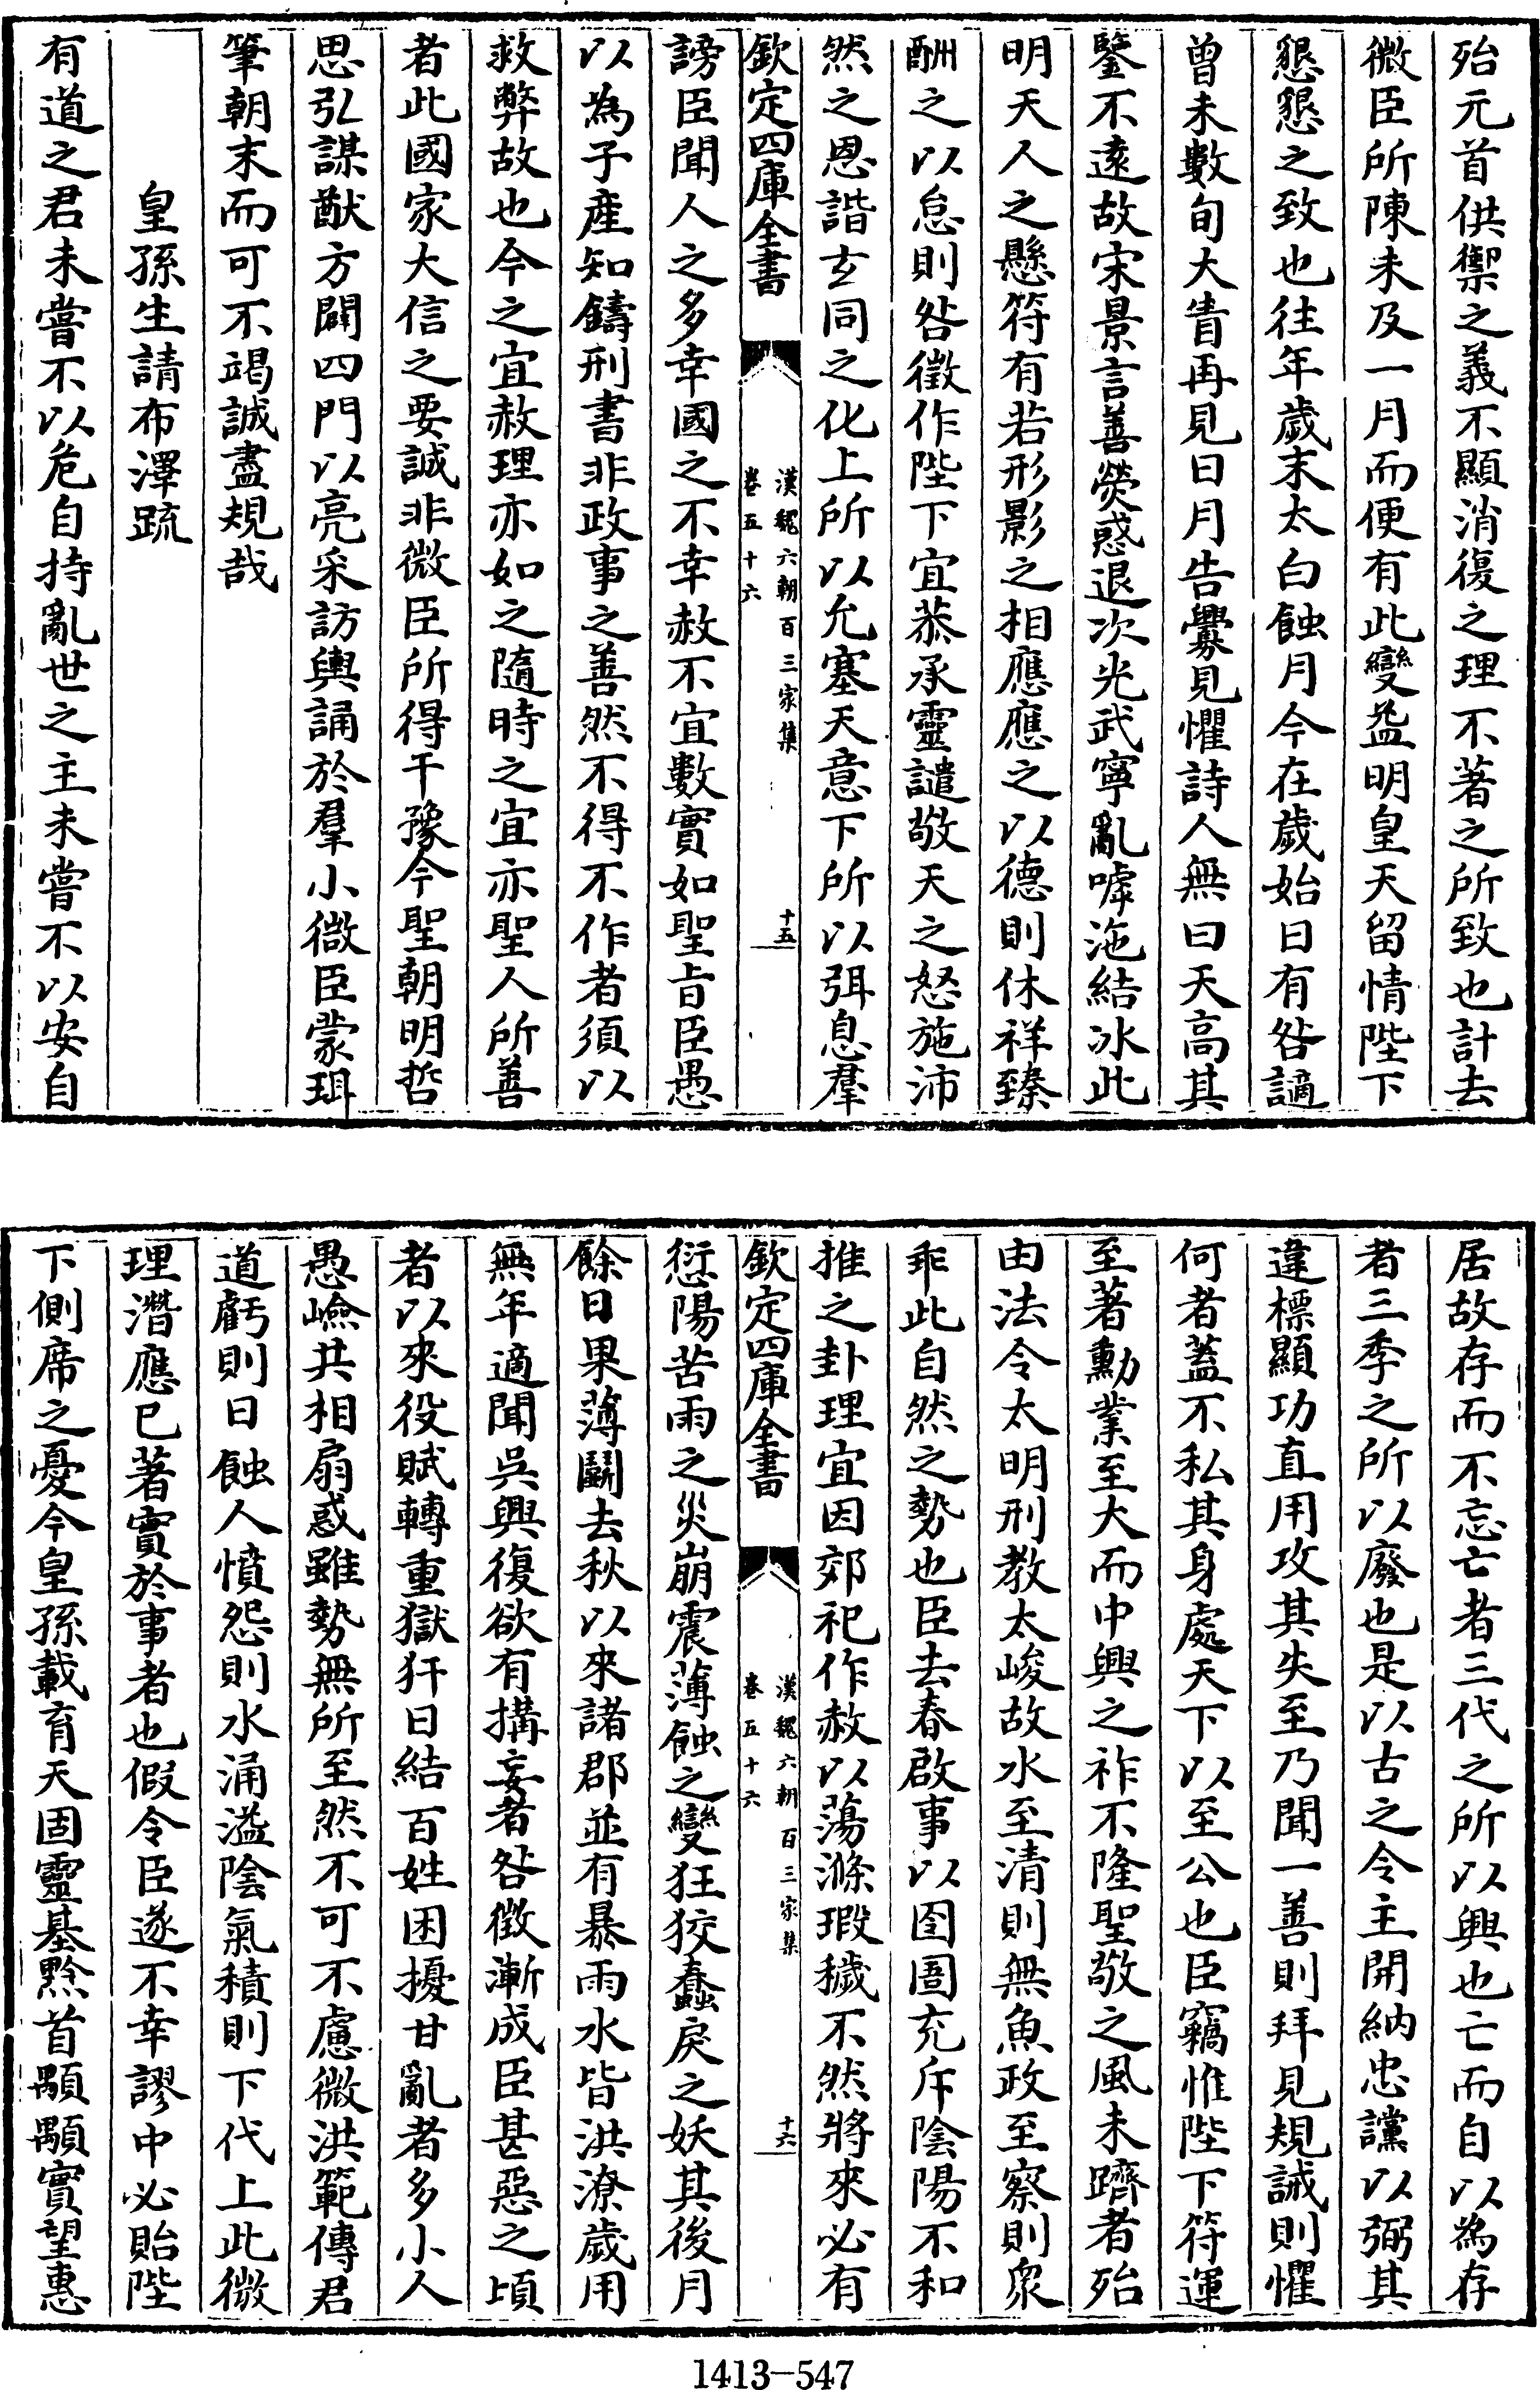 殆元首供禦之義不顯消復之理不著之所致也計去
微臣所陳未及一月而便有此變益明皇天留情陛下
懇懇之致也往年歲末太白蝕月今在歲始日有咎讁
曾未數旬大眚再見日月告釁見懼詩人無曰天高其
鑒不遠故宋景言善熒惑退次光武寧亂呼沲結冰此
明天人之懸符有若形影之相應應之以德則休祥臻
酬之以怠則咎徵作陛下宜恭承靈譴敬天之怒施沛
然之恩諧玄同之化上所以允塞天意下所以弭息羣
欽定四庫全書
漢魏六朝百三家集
卷五十六
十五
謗臣聞人之多幸國之不幸赦不宜數實如聖旨臣愚
以為子產知鑄刑書非政事之善然不得不作者須以
救弊故也今之宜赦理亦如之隨時之宜亦聖人所善
者此國家大信之要誠非微臣所得干豫今聖朝明哲
思弘謀猷方闢四門以亮采訪輿誦於羣小微臣蒙珥
筆朝末而可不竭誠盡規哉
皇孫生請布澤疏
有道之君未嘗不以危自持亂世之主未嘗不以安自
居故存而不忘亡者三代之所以興也亡而自以為存
者三季之所以廢也是以古之令主開納忠讜以弼其
違標顯功直用攻其失至乃聞一善則拜見規誡則懼
何者蓋不私其身處天下以至公也臣竊惟陛下符運
至著勳業至大而中興之祚不隆聖敬之風未躋者殆
由法令太明刑教太峻故水至清則無魚政至察則衆
乖此自然之勢也臣去春啟事以囹圄充斥陰陽不和
推之卦理宜因郊祀作赦以蕩滌瑕穢不然將來必有
欽定四庫全書
漢魏六朝百三家集
卷五十六
十六
愆陽苦雨之災崩震薄蝕之變狂狡蠢戾之妖其後月
餘日果薄鬭去秋以來諸郡並有暴雨水皆洪潦歲用
無年適聞吳興復欲有搆妄者咎徵漸成臣甚惡之頃
者以來役賦轉重獄犴日結百姓困擾甘亂者多小人
愚嶮共相扇惑雖勢無所至然不可不慮微洪範傳君
道虧則日蝕人憤怨則水涌溢陰氣積則下代上此微
理潛應已著實於事者也假令臣遂不幸謬中必貽陛
下側席之憂今皇孫載育天固靈基黔首顒顒實望惠
1413-547